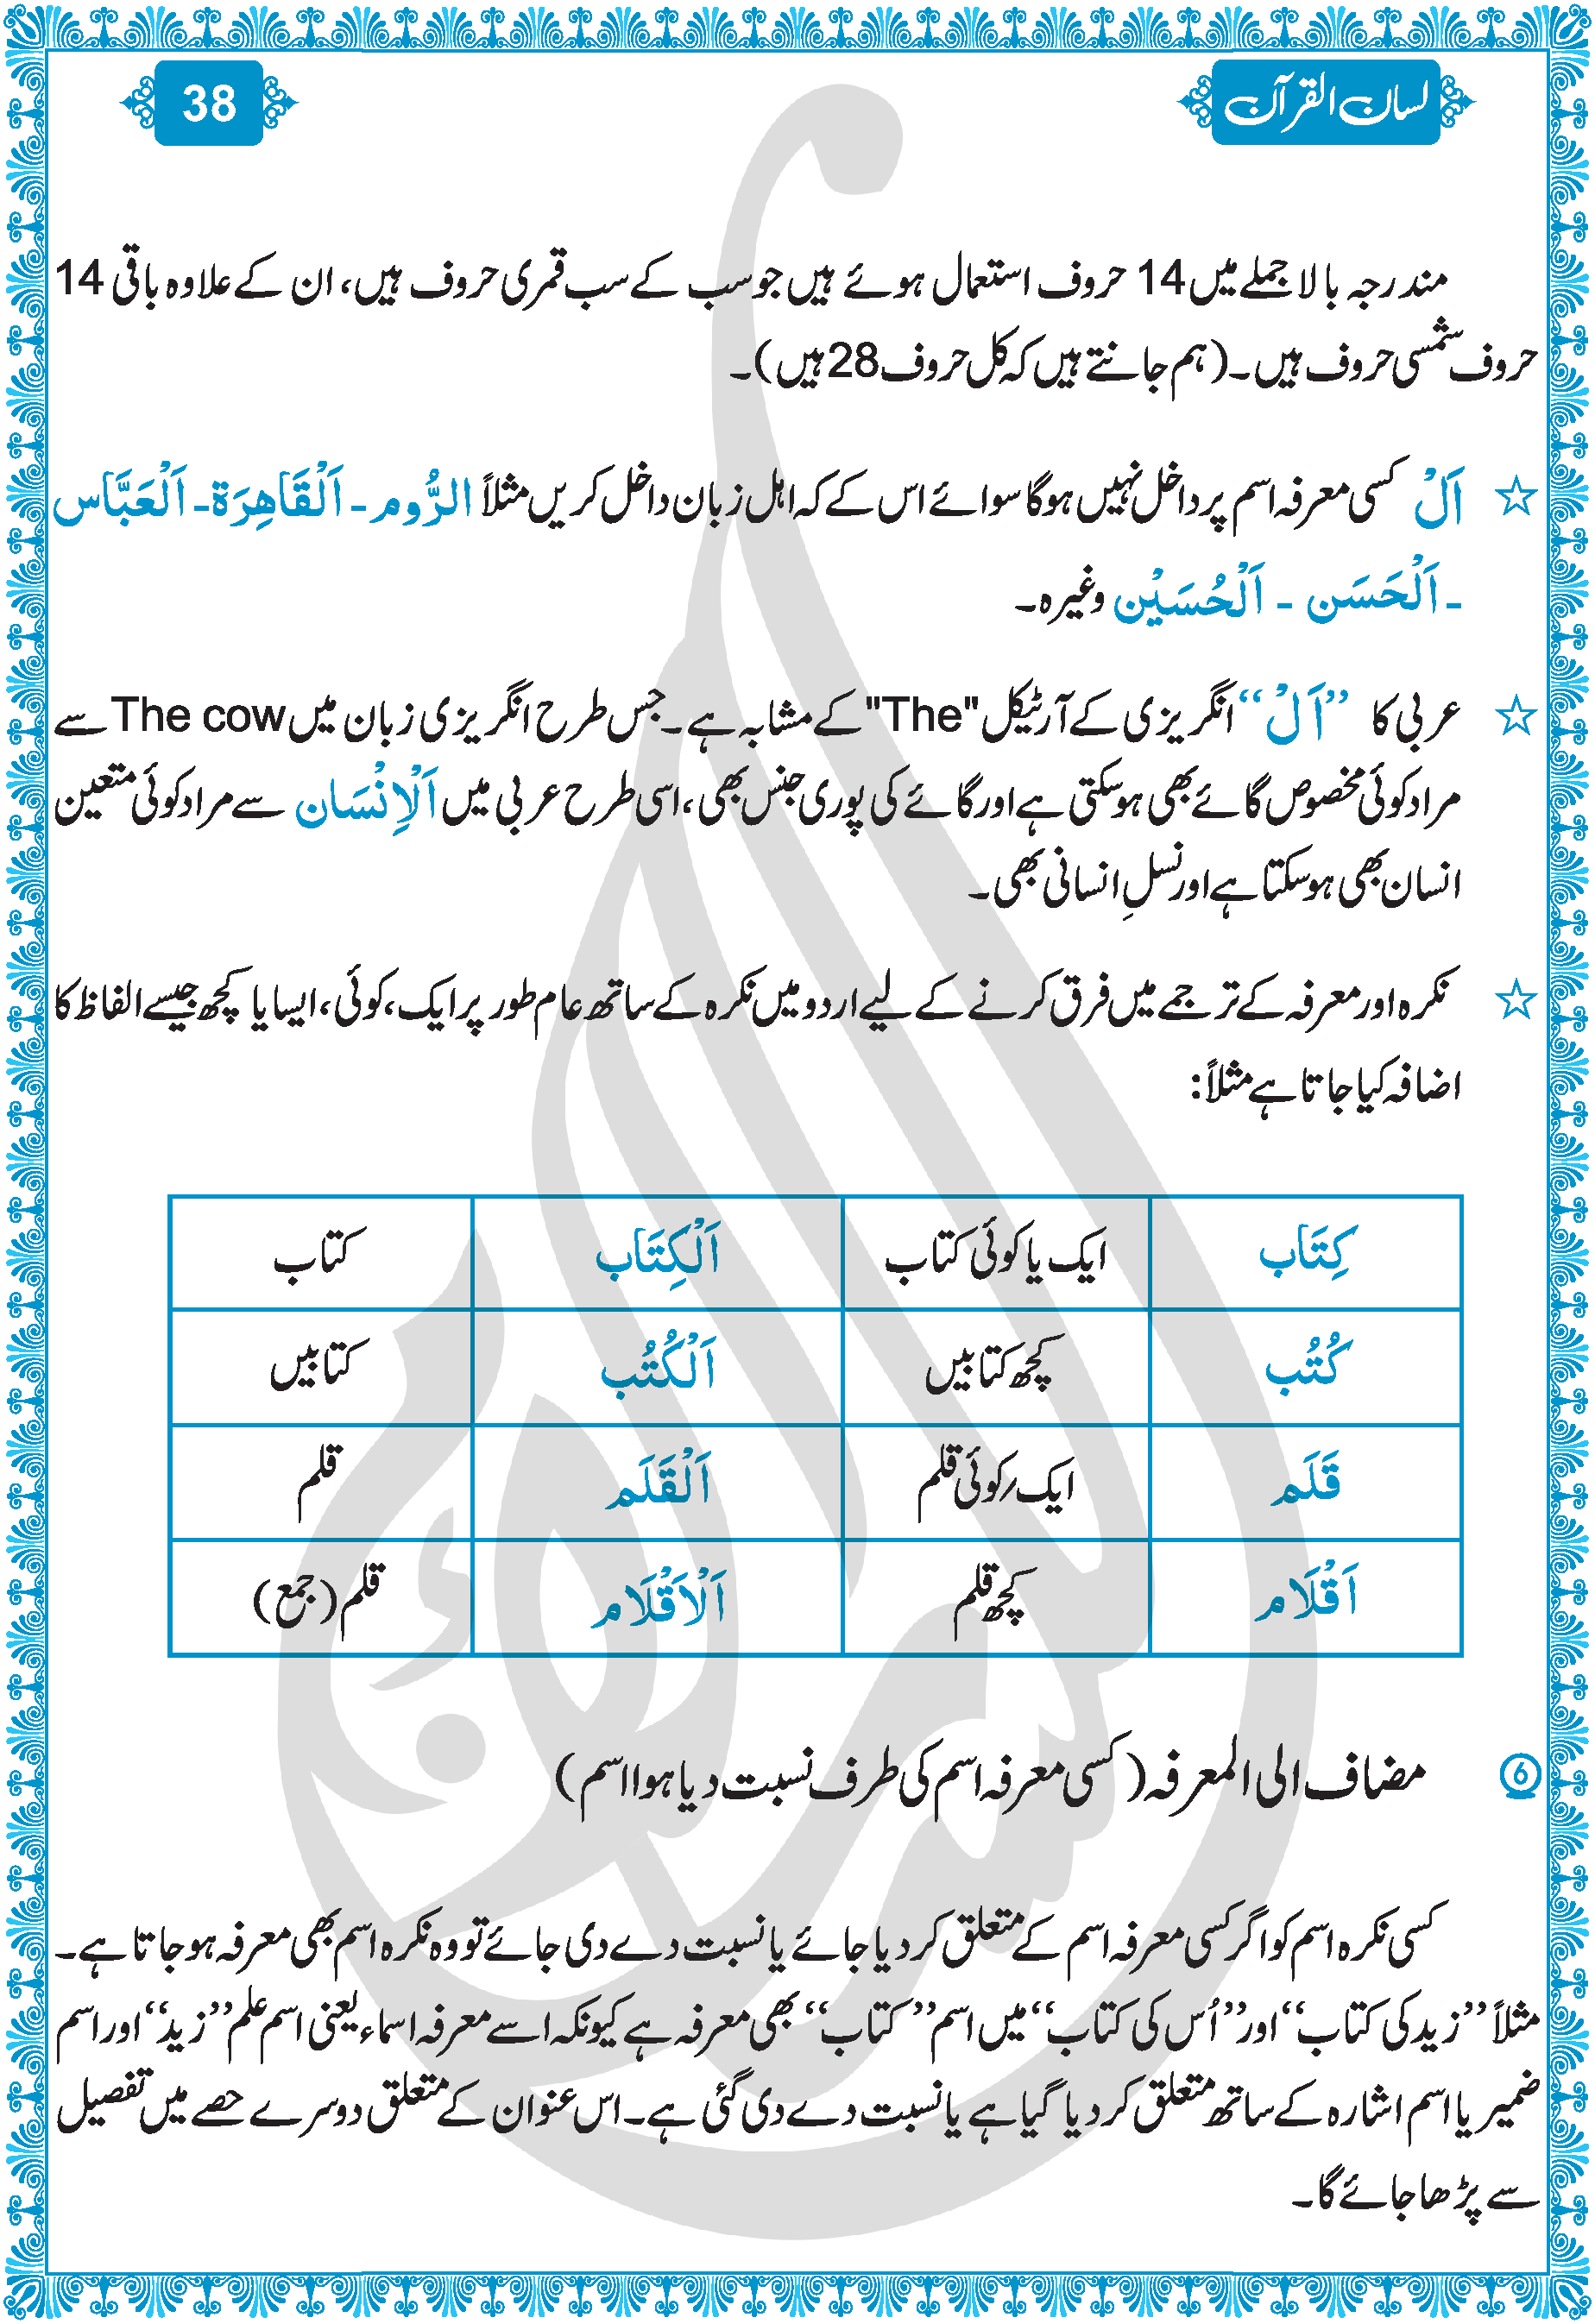 لسان القرآن
38
مندرجہ بالا جملے میں 14 حروف استعمال ہوئے ہیں جو سب کے سب قمری حروف ہیں، ان کے علاوہ باقی 14
حروف شمسی حروف ہیں۔ (ہم جانتے ہیں کہ کل حروف 28 ہیں)۔
☆ اَلْ کسی معرفہ اسم پر داخل نہیں ہوگا سوائے اس کے کہ اہل زبان داخل کریں مثلاً الرُّوم۔ اَلْقَاهِرَة۔ اَلْعَبَّاس
۔ اَلْحَسَن ۔ اَلْحُسَيْن وغیرہ۔
☆ عربی کا ’’اَلْ‘‘ انگریزی کے آرٹیکل "The" کے مشابہ ہے۔ جس طرح انگریزی زبان میں The cow سے
مراد کوئی مخصوص گائے بھی ہوسکتی ہے اور گائے کی پوری جنس بھی، اسی طرح عربی میں اَلْاِنْسَان سے مراد کوئی متعین
انسان بھی ہوسکتا ہے اور نسلِ انسانی بھی۔
☆ نکرہ اور معرفہ کے ترجمے میں فرق کرنے کے لیے اردو میں نکرہ کے ساتھ عام طور پر ایک، کوئی، ایسا یا کچھ جیسے الفاظ کا
اضافہ کیا جاتا ہے مثلاً:
كِتَاب ایک یا کوئی کتاب اَلْكِتَاب کتاب
كُتُب کچھ کتابیں اَلْكُتُب کتابیں
قَلَم ایک؍کوئی قلم اَلْقَلَم قلم
اَقْلَام کچھ قلم اَلْاَقْلَام قلم (جمع)
6 مضاف الی المعرفہ (کسی معرفہ اسم کی طرف نسبت دیا ہوا اسم)
کسی نکرہ اسم کو اگر کسی معرفہ اسم کے متعلق کردیا جائے یا نسبت دے دی جائے تو وہ نکرہ اسم بھی معرفہ ہوجاتا ہے۔
مثلاً ’’زید کی کتاب‘‘ اور ’’اُس کی کتاب‘‘ میں اسم ’’کتاب‘‘ بھی معرفہ ہے کیونکہ اسے معرفہ اسماء یعنی اسم علم ’’زید‘‘ اور اسم
ضمیر یا اسم اشارہ کے ساتھ متعلق کردیا گیا ہے یا نسبت دے دی گئی ہے۔ اس عنوان کے متعلق دوسرے حصے میں تفصیل
سے پڑھا جائے گا۔